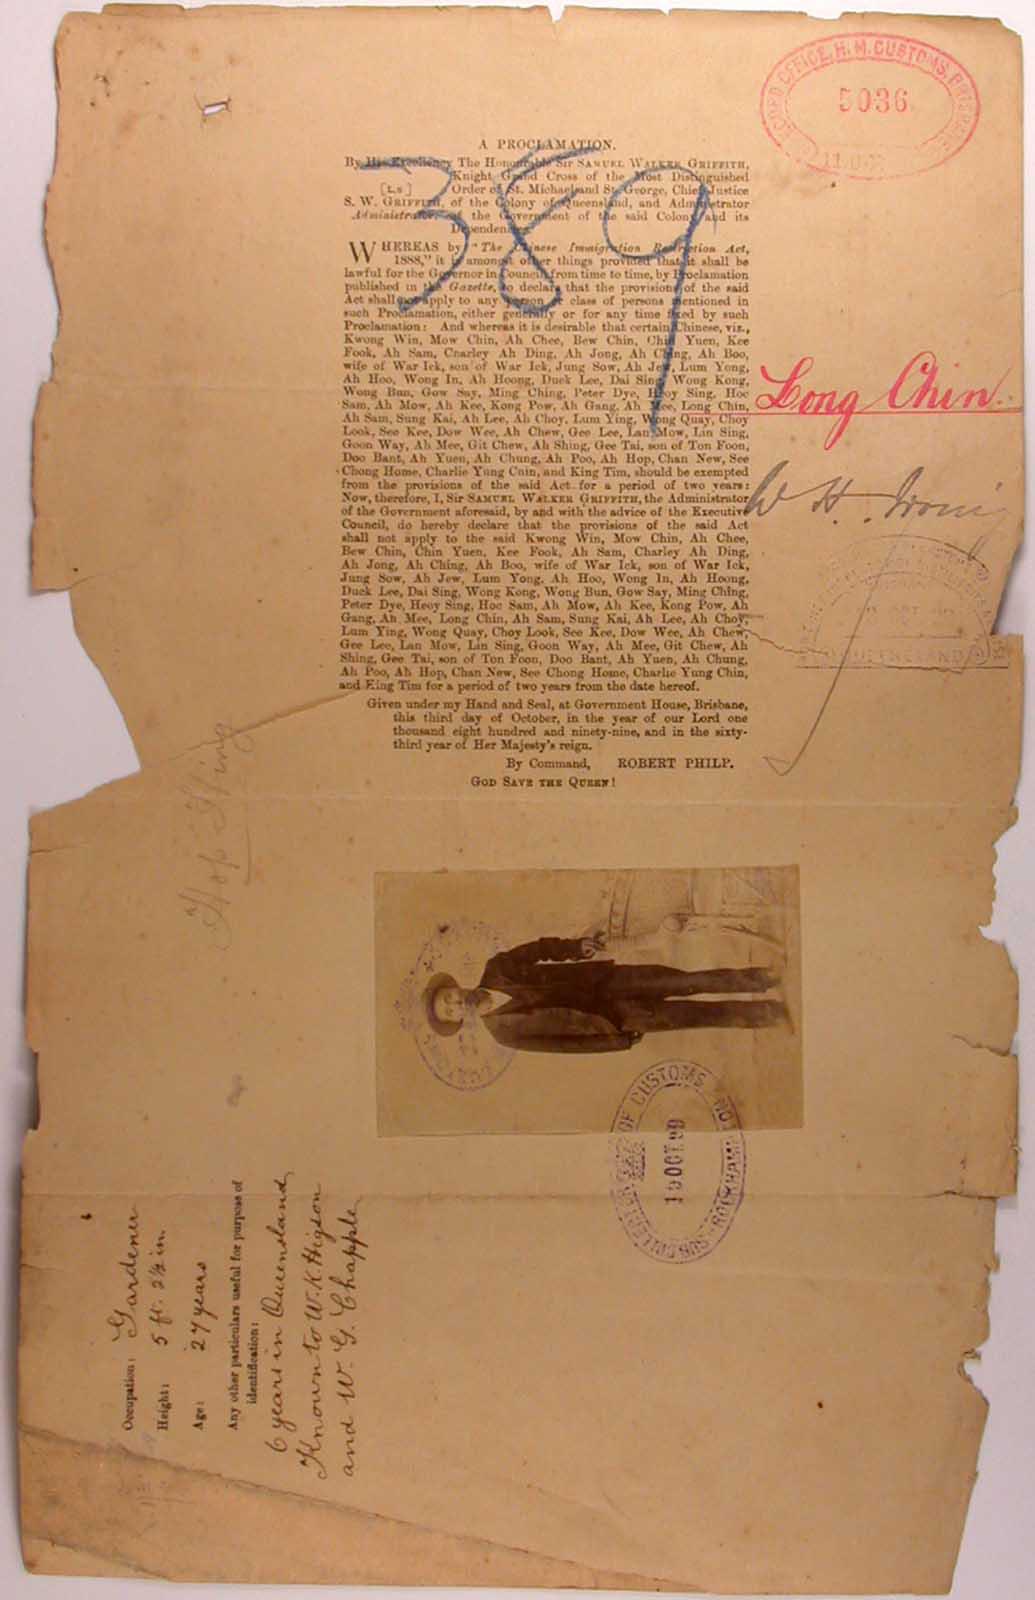 RECORD OFFICE, H. M. CUSTOMS, BRISBANE
5036
389
A PROCLAMATION.
By His Excellency The Honourable Sir SAMUEL WALKER GRIFFITH,
Knight Grand Cross of the Most Distinguished
[L.S] Order of St. Michael and St. George, Chief Justice
S. W. GRIFFITH, of the Colony of Queensland, and Administrator
Administrator. of the Government of the said Colony and its
Dependencies.
WHEREAS by "The Chinese Immigration Restriction Act,
1888," it is amongst other things provided that it shall be
lawful for the Governor in Council, from time to time, by Proclamation
published in the Gazette, to declare that the provisions of the said
Act shall not apply to any person or class of persons mentioned in
such Proclamation, either generally or for any time fixed by such
Proclamation: And whereas it is desirable that certain Chinese, viz.,
Kwong Win, Mow Chin, Ah Chee, Bew Chin, Chin Yuen, Kee
Fook, Ah Sam, Charley Ah Ding, Ah Jong, Ah Ching, Ah Boo,
wife of War Ick, son of War Ick, Jung Sow, Ah Jew, Lum Yong,
Ah Hoo, Wong In, Ah Hoong, Duck Lee, Dai Sing, Wong Kong,
Wong Bun, Gow Say, Ming Ching, Peter Dye, Heoy Sing, Hoc
Sam, Ah Mow, Ah Kee, Kong Pow, Ah Gang, Ah Mee, Long Chin,
Ah Sam, Sung Kai, Ah Lee, Ah Choy, Lum Ying, Wong Quay, Choy
Look, See Kee, Dow Wee, Ah Chew, Gee Lee, Lan Mow, Lin Sing,
Goon Way, Ah Mee, Git Chew, Ah Shing, Gee Tai, son of Ton Foon,
Doo Bant, Ah Yuen, Ah Chung, Ah Poo, Ah Hop, Chan New, See
Chong Home, Charlie Yung Chin, and King Tim, should be exempted
from the provisions of the said Act for a period of two years:
Now, therefore, I, Sir SAMUEL WALKER GRIFFITH, the Administrator
of the Government aforesaid, by and with the advice of the Executive
Council, do hereby declare that the provisions of the said Act
shall not apply to the said Kwong Win, Mow Chin, Ah Chee,
Bew Chin, Chin Yuen, Kee Fook, Ah Sam, Charley Ah Ding,
Ah Jong, Ah Ching, Ah Boo, wife of War Ick, son of War Ick,
Jung Sow, Ah Jew, Lum Yong, Ah Hoo, Wong In, Ah Hoong,
Duck Lee, Dai Sing, Wong Kong, Wong Bun, Gow Say, Ming Ching,
Peter Dye, Heoy Sing, Hoc Sam, Ah Mow, Ah Kee, Kong Pow, Ah
Gang, Ah Mee, Long Chin, Ah Sam, Sung Kai, Ah Lee, Ah Choy,
Lum Ying, Wong Quay, Choy Look, See Kee, Dow Wee, Ah Chew,
Gee Lee, Lan Mow, Lin Sing, Goon Way, Ah Mee, Git Chew, Ah
Shing, Gee Tai, son of Ton Foon, Doo Bant, Ah Yuen, Ah Chung,
Ah Poo, Ah Hop, Chan New, See Chong Home, Charlie Yung Chin,
and King Tim for a period of two years from the date hereof.
Given under my Hand and Seal, at Government House, Brisbane,
this third day of October, in the year of our Lord one
thousand eight hundred and ninety-nine, and in the sixty-
third year of Her Majesty's reign.
By Command, ROBERT PHILP.
GOD SAVE THE QUEEN!
Long Chin
W H Irving
QUEENSLAND
Hop Shing
SUB-COLLECTOR OF CUSTOMS NO 1 ROCKHAMPTON
19 OCT 99
Occupation: Gardener
Height: 5 ft. 2½ in
Age: 27 years
Any other particulars useful for purpose of
identification:
6 years in Queensland
Known to W. K. Higson
and W. G. Chapple